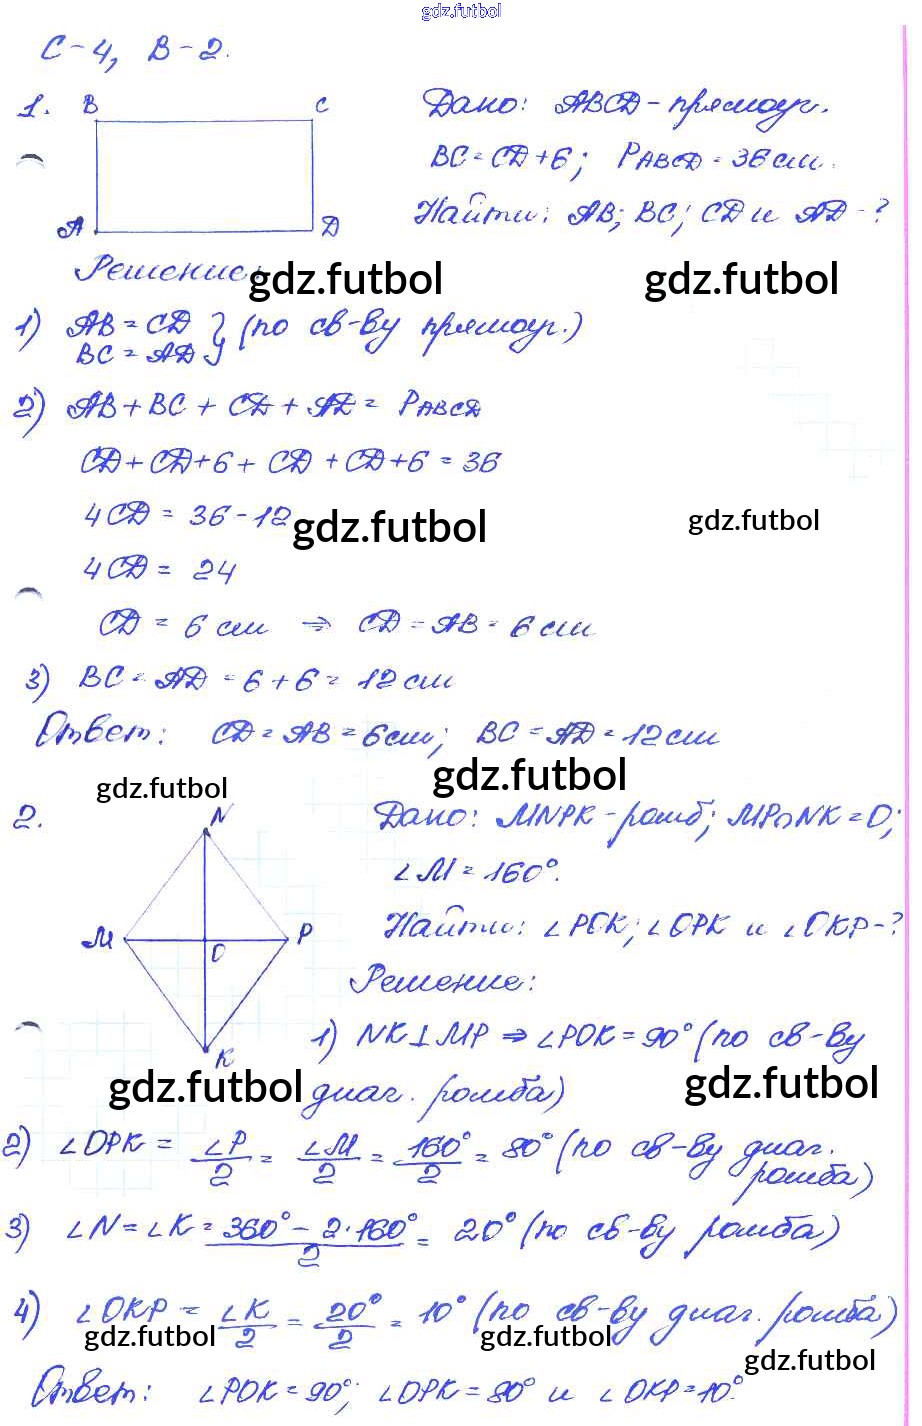 gdz.futbol
С-4, В-2.
1. B C Дано: ABCD - прямоуг.
BC = CD + 6; PABCD = 36 см.
A D Найти: AB; BC; CD и AD - ?
Решение:
gdz.futbol gdz.futbol
1) AB = CD } (по св-ву прямоуг.)
BC = AD
2) AB + BC + CD + AD = PABCD
CD + CD + 6 + CD + CD + 6 = 36
4CD = 36 - 12
gdz.futbol gdz.futbol
4CD = 24
CD = 6 см ⇒ CD = AB = 6 см
3) BC = AD = 6 + 6 = 12 см
Ответ: CD = AB = 6 см; BC = AD = 12 см
gdz.futbol gdz.futbol
2. N Дано: MNPK - ромб; MP∩NK = O;
∠M = 160°.
Найти: ∠POK; ∠OPK и ∠OKP - ?
M O P
Решение:
1) NK ⊥ MP ⇒ ∠POK = 90° (по св-ву
K
gdz.futbol диаг. ромба) gdz.futbol
2) ∠OPK = ∠P/2 = ∠M/2 = 160°/2 = 80° (по св-ву диаг.
ромба)
3) ∠N = ∠K = 360° - 2·160°/2 = 20° (по св-ву ромба)
4) ∠OKP = ∠K/2 = 20°/2 = 10° (по св-ву диаг. ромба)
gdz.futbol gdz.futbol
gdz.futbol
Ответ: ∠POK = 90°; ∠OPK = 80° и ∠OKP = 10°.